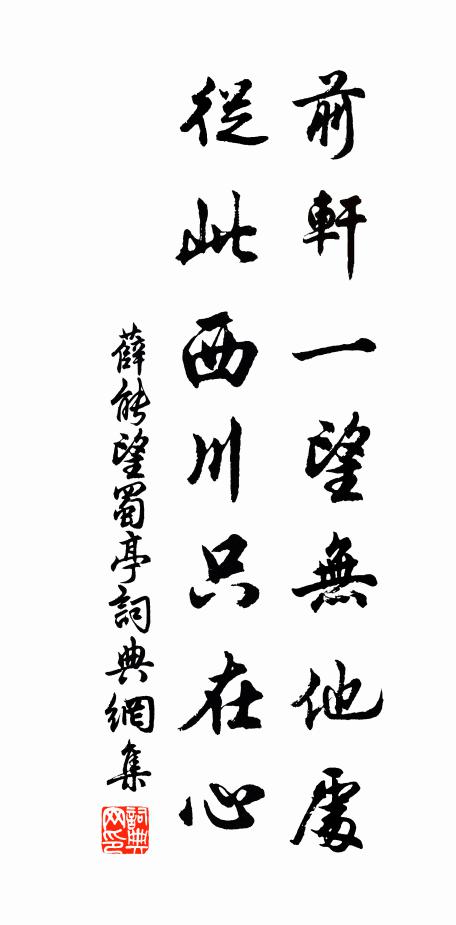 前軒一望無他處
從此西川只在心
薛能望蜀亭詞典網集
詞典网印